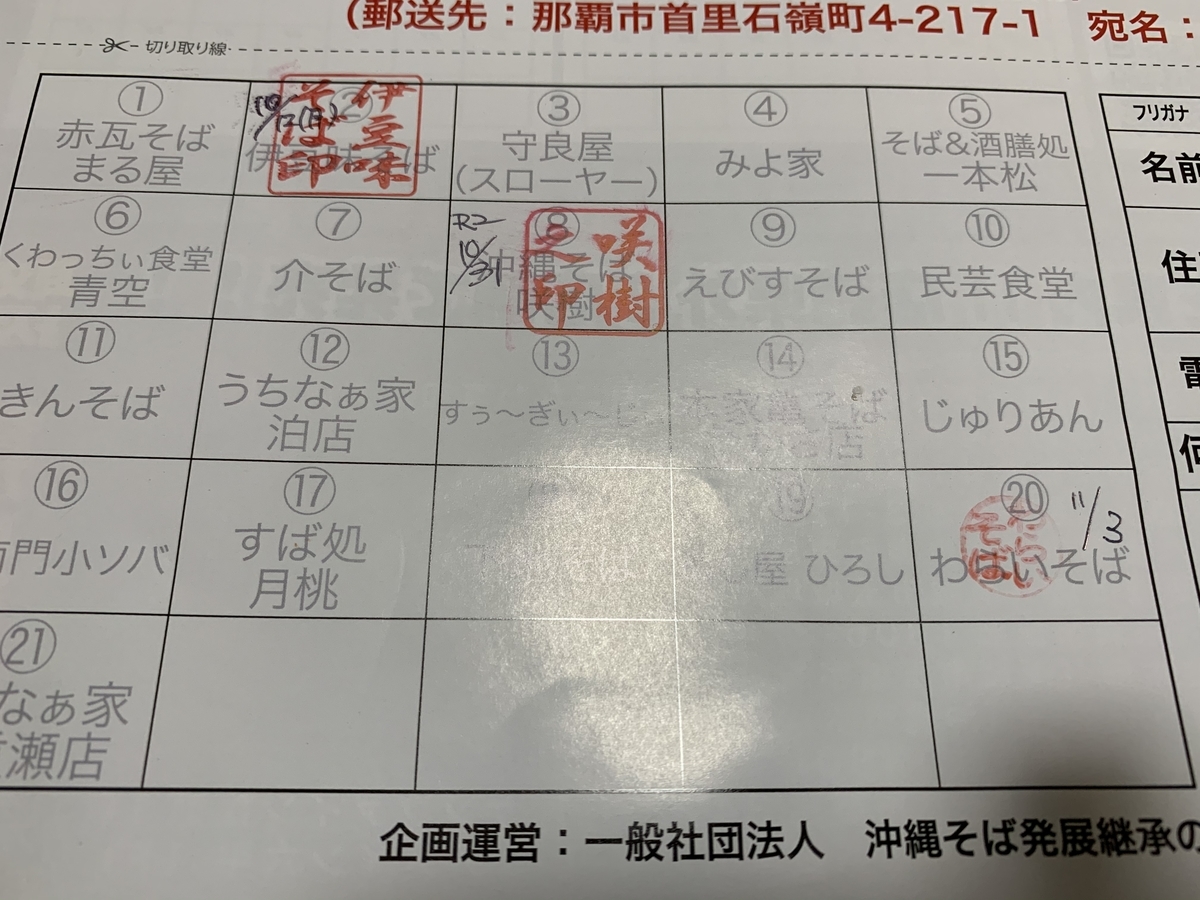 (郵送先：那覇市首里石嶺町4-217-1 宛名：
切り取り線
① 赤瓦そば
まる屋
②
伊豆味
そば印
③
守良屋
(スローヤー)
④
みよ家
⑤
そば&酒膳処
一本松
フリガナ
名前
⑥
くわっちぃ食堂
青空
⑦
介そば
R2
10/31
⑧
沖縄そば
咲樹
咲樹
之印
⑨
えびすそば
⑩
民芸食堂
⑪
きんそば
⑫
うちなぁ家
泊店
⑬
すぅ〜ぎぃ〜じ
⑭
⑮
じゅりあん
⑯
門小ソバ
⑰
すば処
月桃
⑲
屋 ひろし
⑳
11/3
わらいそば
㉑
なぁ家
瀬店
企画運営：一般社団法人 沖縄そば発展継承の